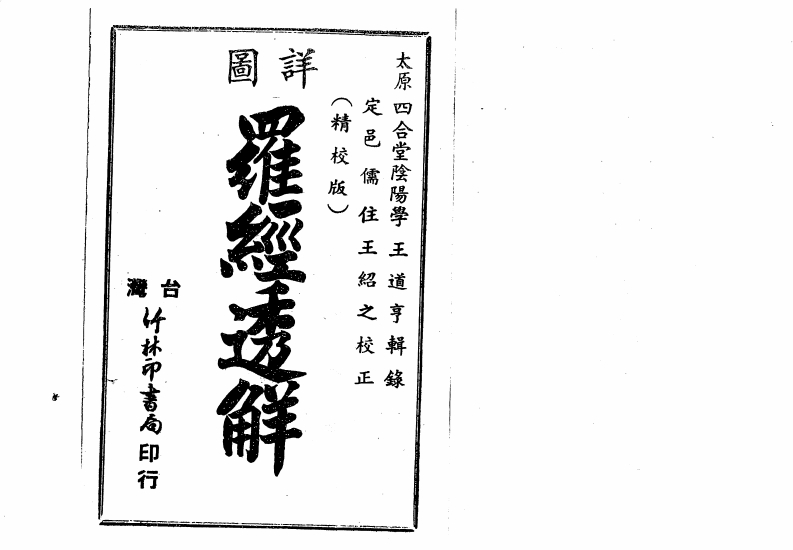 太原 四合堂陰陽學 王道亨輯錄
定邑儒 住王紹之校正
（精校版）
詳圖
羅經透解
台灣
竹林印書局
印行